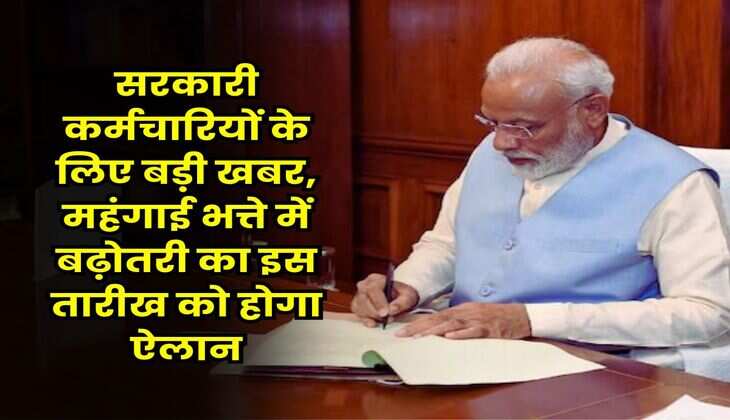 सरकारी
कर्मचारियों के
लिए बड़ी खबर,
महंगाई भत्ते में
बढ़ोतरी का इस
तारीख को होगा
ऐलान